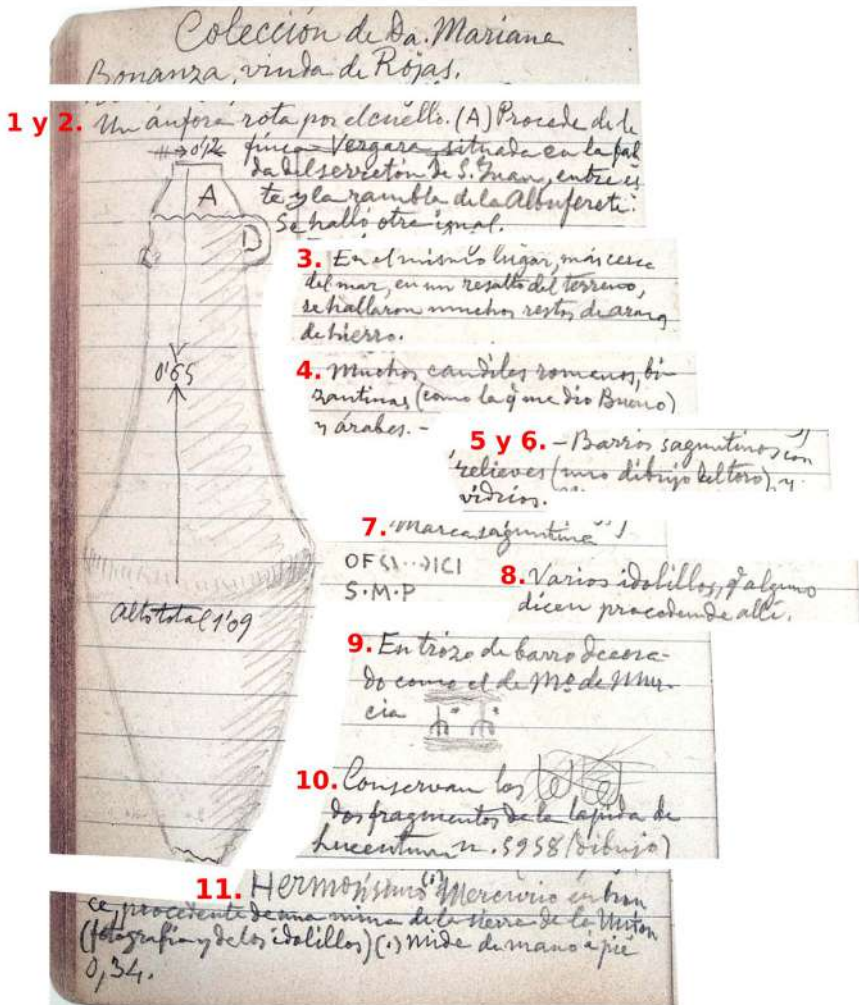 Colección de Da. Mariana
Bonanza, viuda de Rojas.
1 y 2. Un ánfora rota por el cuello. (A) Procede de la
0'12
finca Vergara, situada en la fal
da del serretón de S. Juan, entre és
te y la rambla de la Albufereta.
Se halló otra igual.
A
3. En el mismo lugar, más cerca
del mar, en un resalto del terreno,
se hallaron muchos restos de
de hierro.
0'65
4. Muchos candiles romanos, bi-
zantinas (como la q me dio Bueno)
y árabes. -
5 y 6. - Barros saguntinos con
relieves (uno dibujo del toro), y
vidrios.
7. Marca saguntina
OF ICI
S·M·P
8. Varios idolillos, q alguno
dicen proceden de allí.
Alto total 1'09
9. En trozo de barro decora-
do como el de Mo. de Mur-
cia
10. Conservan los
dos fragmentos de la lápida de
Lucentum n. 5958 (dibujo)
11. Hermosísimo (1) Mercurio en bron
ce, procedente de una mina de la sierra de la Unión
(fotografía y de los idolillos) (1) Mide de mano a pie
0,34.